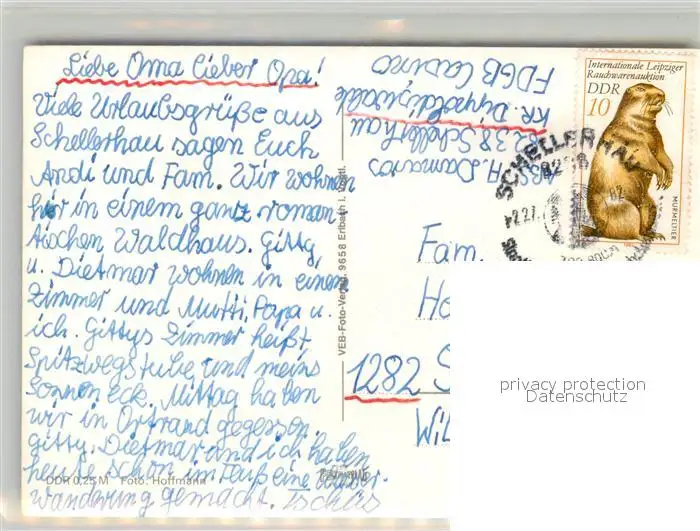 Liebe Oma lieber Opa!
Viele Urlaubsgrüße aus
Schellerhau sagen Euch
Andi und Fam. Wir wohnen
hier in einem ganz roman-
tischen Waldhaus. Gitty,
u. Dietmar wohnen in einem
Zimmer und Mutti, Papa u.
ich. Gittys Zimmer heißt
Spitzwegstube und meins
Sonneneck. Mittag haben
wir in Ortrand gegessen.
Gitty, Dietmar und ich haben
heute schon im eine
wanderung gemacht. Tschüs
DDR 0,25 M Foto: Hoffmann
VEB-Foto-Verlag 9658 Erlbach i. Vogtl.
Abs. H.
8238 Schellerhau
Kr. Dippoldiswalde
FDGB
Internationale Leipziger
Rauchwarenauktion
DDR
10
MURMELTIER
SCHELLERHAU
8238
Fam.
Ho
1282 S
Wil
privacy protection
Datenschutz